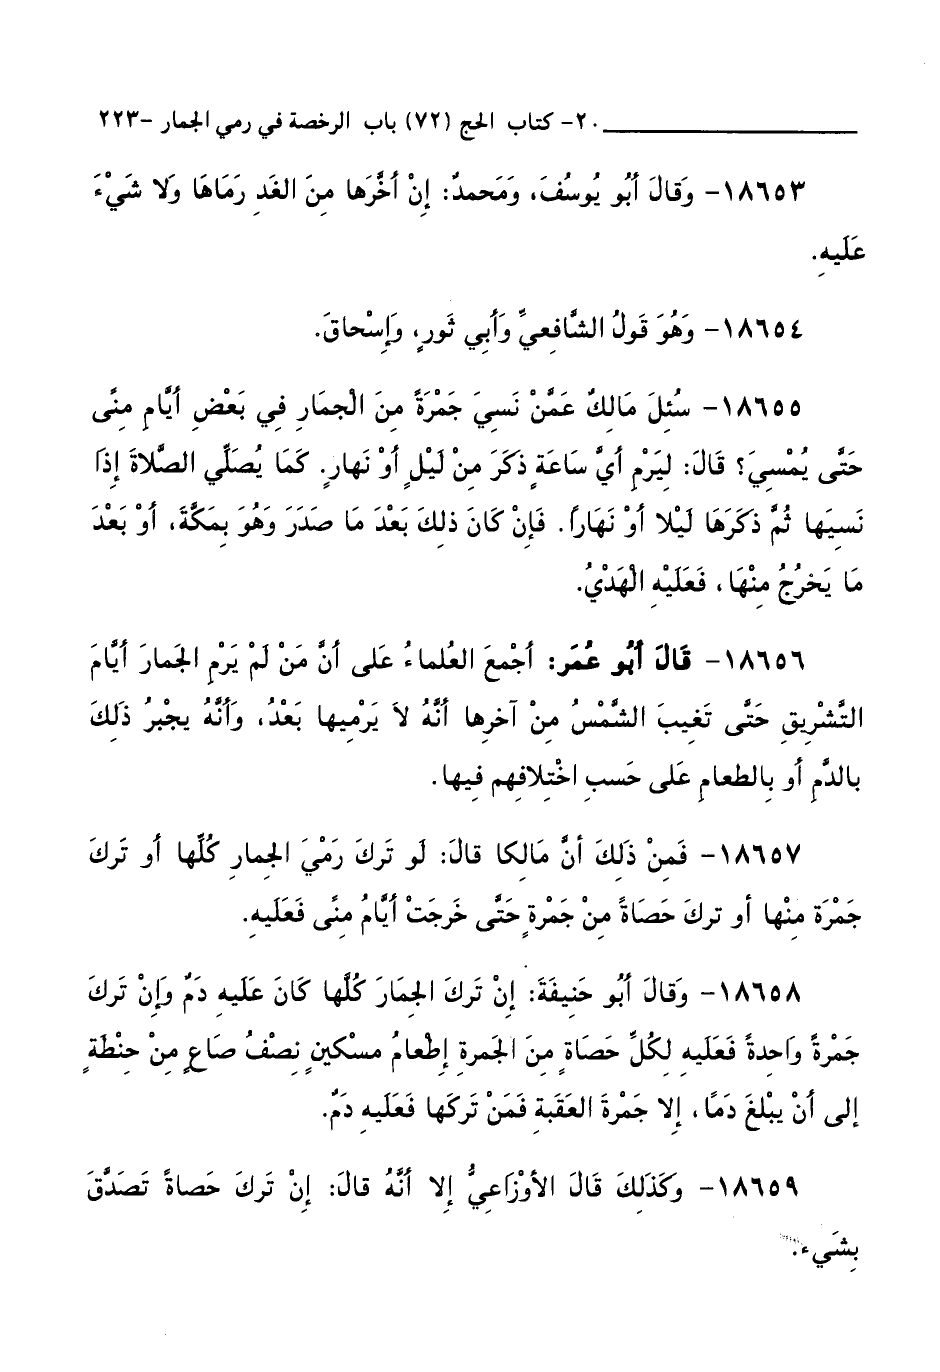 ٢٠- كتاب الحج (٧٢) باب الرخصة في رمي الجمار -٢٢٣
١٨٦٥٣- وَقالَ أَبُو يُوسُفَ، وَمَحمدٌ: إِنْ أخَّرَها مِنَ الغَدِ رَمَاهَا وَلا شَيْءَ
عَلَيهِ.
١٨٦٥٤- وَهُوَ قَولُ الشَّافعِيِّ وَأَبي ثَورٍ، وَإِسْحاقَ.
١٨٦٥٥- سُئِلَ مَالِكٌ عَمَّنْ نَسِيَ جَمْرَةً مِنَ الْجمَارِ فِي بَعْضِ أيَّامِ مِنًى
حَتَّى يُمْسِيَ؟ قَالَ: لِيَرْمِ أيَّ سَاعَةٍ ذكَرَ مِنْ لَيْلٍ أوْ نَهارٍ. كَمَا يُصَلِّي الصَّلاةَ إذَا
نَسيَها ثُمَّ ذكَرَهَا لَيْلا أوْ نَهَاراً. فَإنْ كَانَ ذلِكَ بَعْدَ مَا صَدَرَ وَهُوَ بِمَكَّةَ، أوْ بَعْدَ
مَا يَخرُجُ مِنْهَا، فَعَلَيْهِ الْهَدْيُ.
١٨٦٥٦- قَالَ أَبُو عُمَر: أجْمعَ العُلماءُ عَلى أنَّ مَنْ لَمْ يَرْمِ الجَمارَ أيَّامَ
التَّشْرِيقِ حَتَّى تَغيبَ الشَّمْسُ مِنْ آخرِها أنَّهُ لاَ يَرْمِيها بَعْدُ، وَأنَّهُ يجْبرُ ذَلِكَ
بالدَّمِ أو بِالطعامِ عَلى حَسبِ اخْتِلافِهم فِيها.
١٨٦٥٧- فَمِنْ ذَلِكَ أنَّ مَالِكا قالَ: لَو تَركَ رَمْيَ الجِمارِ كُلِّها أو تَركَ
جَمْرَة مِنْها أو تركَ حَصَاةً مِنْ جَمْرةٍ حَتَّى خَرجَتْ أيَّامُ مِنًى فَعَلَيهِ.
١٨٦٥٨- وَقالَ أَبُو حَنِيفَةَ: إِنْ تَركَ الجِمَارَ كُلَّها كَانَ عَلَيهِ دَمٌ وَإِنْ تَركَ
جَمْرةً وَاحدةً فَعَلَيهِ لِكُلِّ حَصَاةٍ مِنَ الجَمرةِ إِطْعامُ مسْكينٍ نِصْفُ صَاعٍ مِنْ حِنْطَةٍ
إلى أنْ يبْلغَ دَمًا، إِلا جَمْرةَ العَقَبةِ فَمَنْ تَركَها فَعَلَيهِ دَمٌ.
١٨٦٥٩- وَكَذَلِكَ قَالَ الأوْزَاعِيُّ إِلا أنَّهُ قالَ: إِنْ تَركَ حَصاةً تَصدَّقَ
بِشَيء.